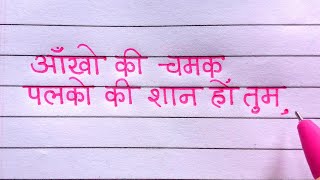 आँखो की चमक
पलको की शान हों तुम,